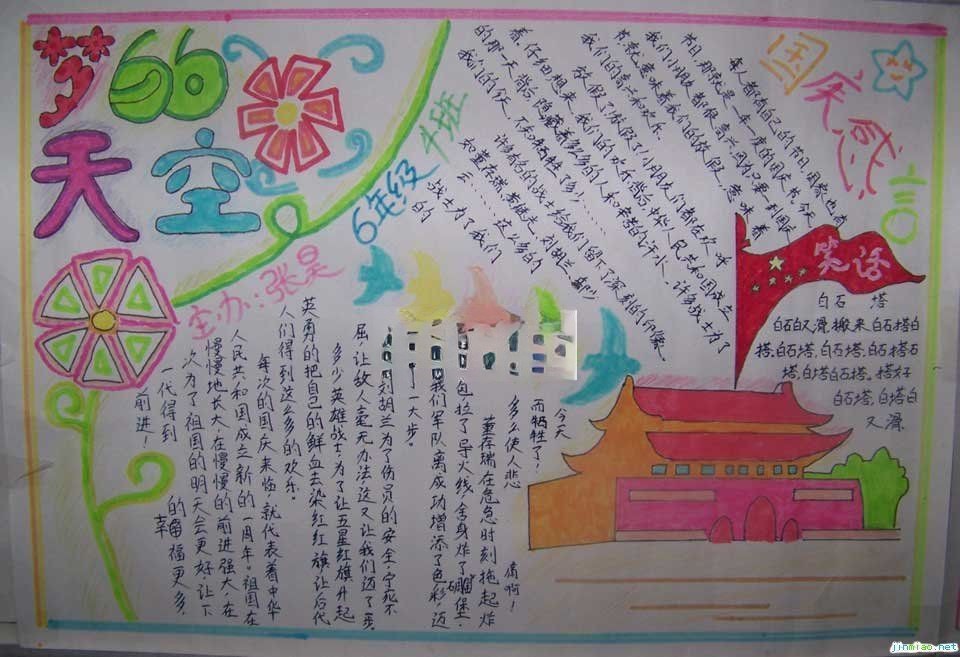 梦的
天空
主办:张昊
6年级
4班
国庆感言
每人都有自己的节日,国家也有
节日,那就是一年一度的国庆节。今天
我们小朋友都很高兴,因为只要一到国庆
节就意味着我们的放假,意味着
我们的高兴和欢乐。
放假了!放假了!小朋友们都在欢呼
着,仔细想来,我们的欢乐背后,中华人民共和国成立
的那一天背后,隐藏着多少的人和辛劳的汗水、许多战士为了
我们的今天,不知牺牲了多少……
许多的战士给我们留下了深刻的印像,
如董存瑞、黄继光、刘胡兰、邱少
云……这么多的
战士为了我们
的
今天
而牺牲了!
多么使人悲
痛啊!
董存瑞在危急时刻拖起炸
包拉了导火线,舍身炸了碉堡,
我们军队离成功增添了色彩,迈
了一大步。
刘胡兰为了伤员的安全,宁死不
屈,让敌人毫无办法这又让我们迈了一步。
多少英雄战士,为了让五星红旗升起
英勇的把自己的鲜血去染红红旗,让后代
人们得到这么多的欢乐。
每次的国庆来临,就代表着中华
人民共和国成立新的一周年。祖国在
慢慢地长大,在慢慢的前进强大,在
次为了祖国的明天会更好,让下
一代得到
的幸福更多,
前进!
笑话
白石塔
白石白又滑,搬来白石搭白
塔,白石塔,白石塔,白石搭石
塔,白塔白石搭。搭好
白石塔,白塔白
又滑
jinmiao.net